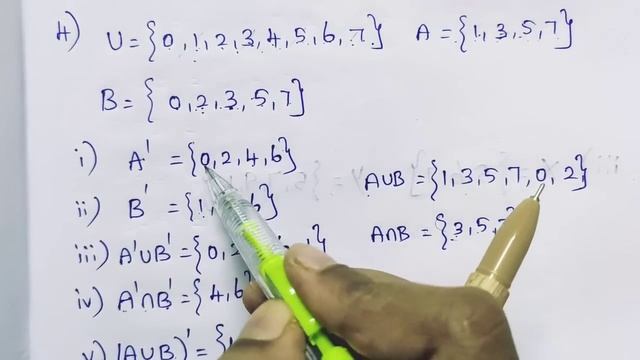 4) U = {0, 1, 2, 3, 4, 5, 6, 7} A = {1, 3, 5, 7}
B = { 0, 2, 3, 5, 7}
i) A' = {0, 2, 4, 6}
A∪B = {1, 3, 5, 7, 0, 2}
ii) B' = {1, 6}
A∩B = {3, 5,
iii) A'∪B' = {0, 2 }
iv) A'∩B' = {4, 6
v) (A∪B)' = {